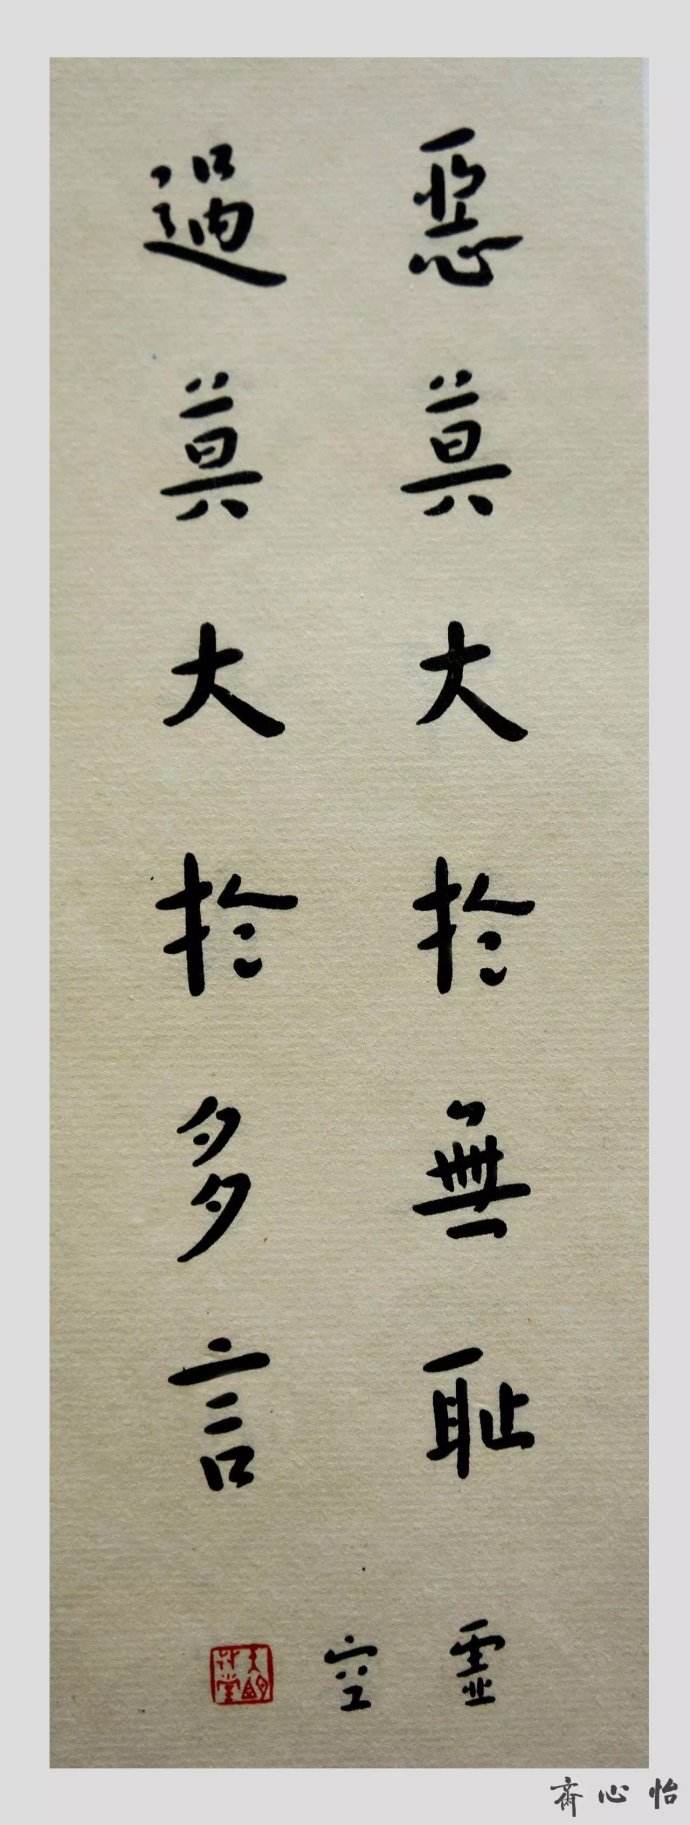 惡莫大於無耻
過莫大於多言
靈空
怡心齋